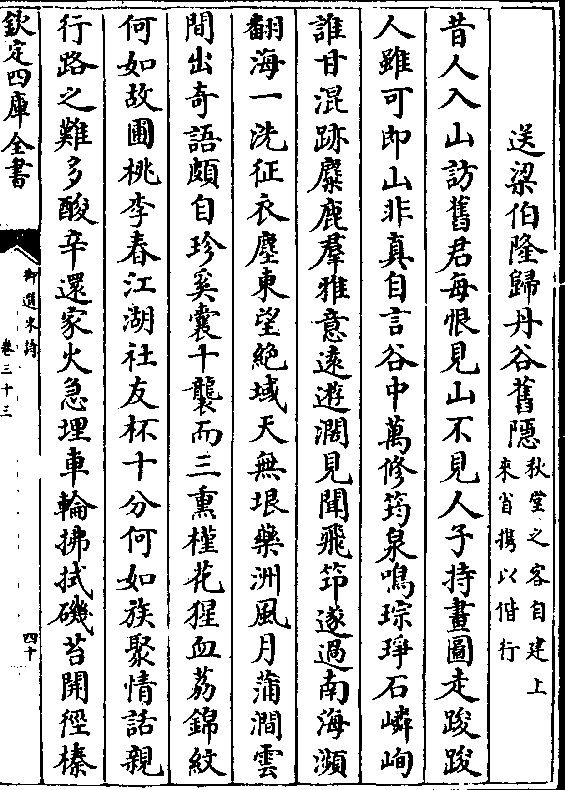 送梁伯隆歸丹谷舊隠
秋堂之客自建上
來省携以偕行
昔人入山訪舊君每恨見山不見人子持畫圖走踆踆
人雖可即山非真自言谷中萬修筠泉鳴琮琤石嶙峋
誰甘混跡麋鹿羣雅意遠遊濶見聞飛笻遂過南海瀕
翻海一洗征衣塵東望絶域天無垠藥洲風月蒲澗雲
間出奇語頗自珍奚囊十襲而三熏槿花猩血荔錦紋
何如故圃桃李春江湖社友杯十分何如族聚情話親
行路之難多酸辛還家火急埋車輪拂拭磯苔開徑榛
欽定四庫全書
御選宋詩
卷三十三
四十